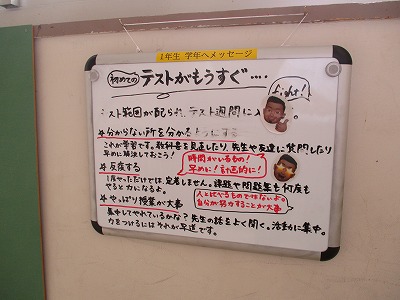 1年生 学年へメッセージ
初めての テストがもうすぐ….
fight!
テスト範囲が配られ、テスト週間に入
☆分からない所を分かるようにする
これが学習です。教科書を見直したり、先生や友達に質問したり
早めに解決しておこう!
時間がいるもの!
早めに!計画的に!
☆反復する
1度やっただけでは、定着しません。課題や問題集も何度も
やると力になるよ。
人と比べるものではないよ。
自分が努力することが大事
☆やっぱり授業が大事
集中してやれているかな?先生の話をよく聞く。活動に集中。
力をつけるにはそれが早道です。